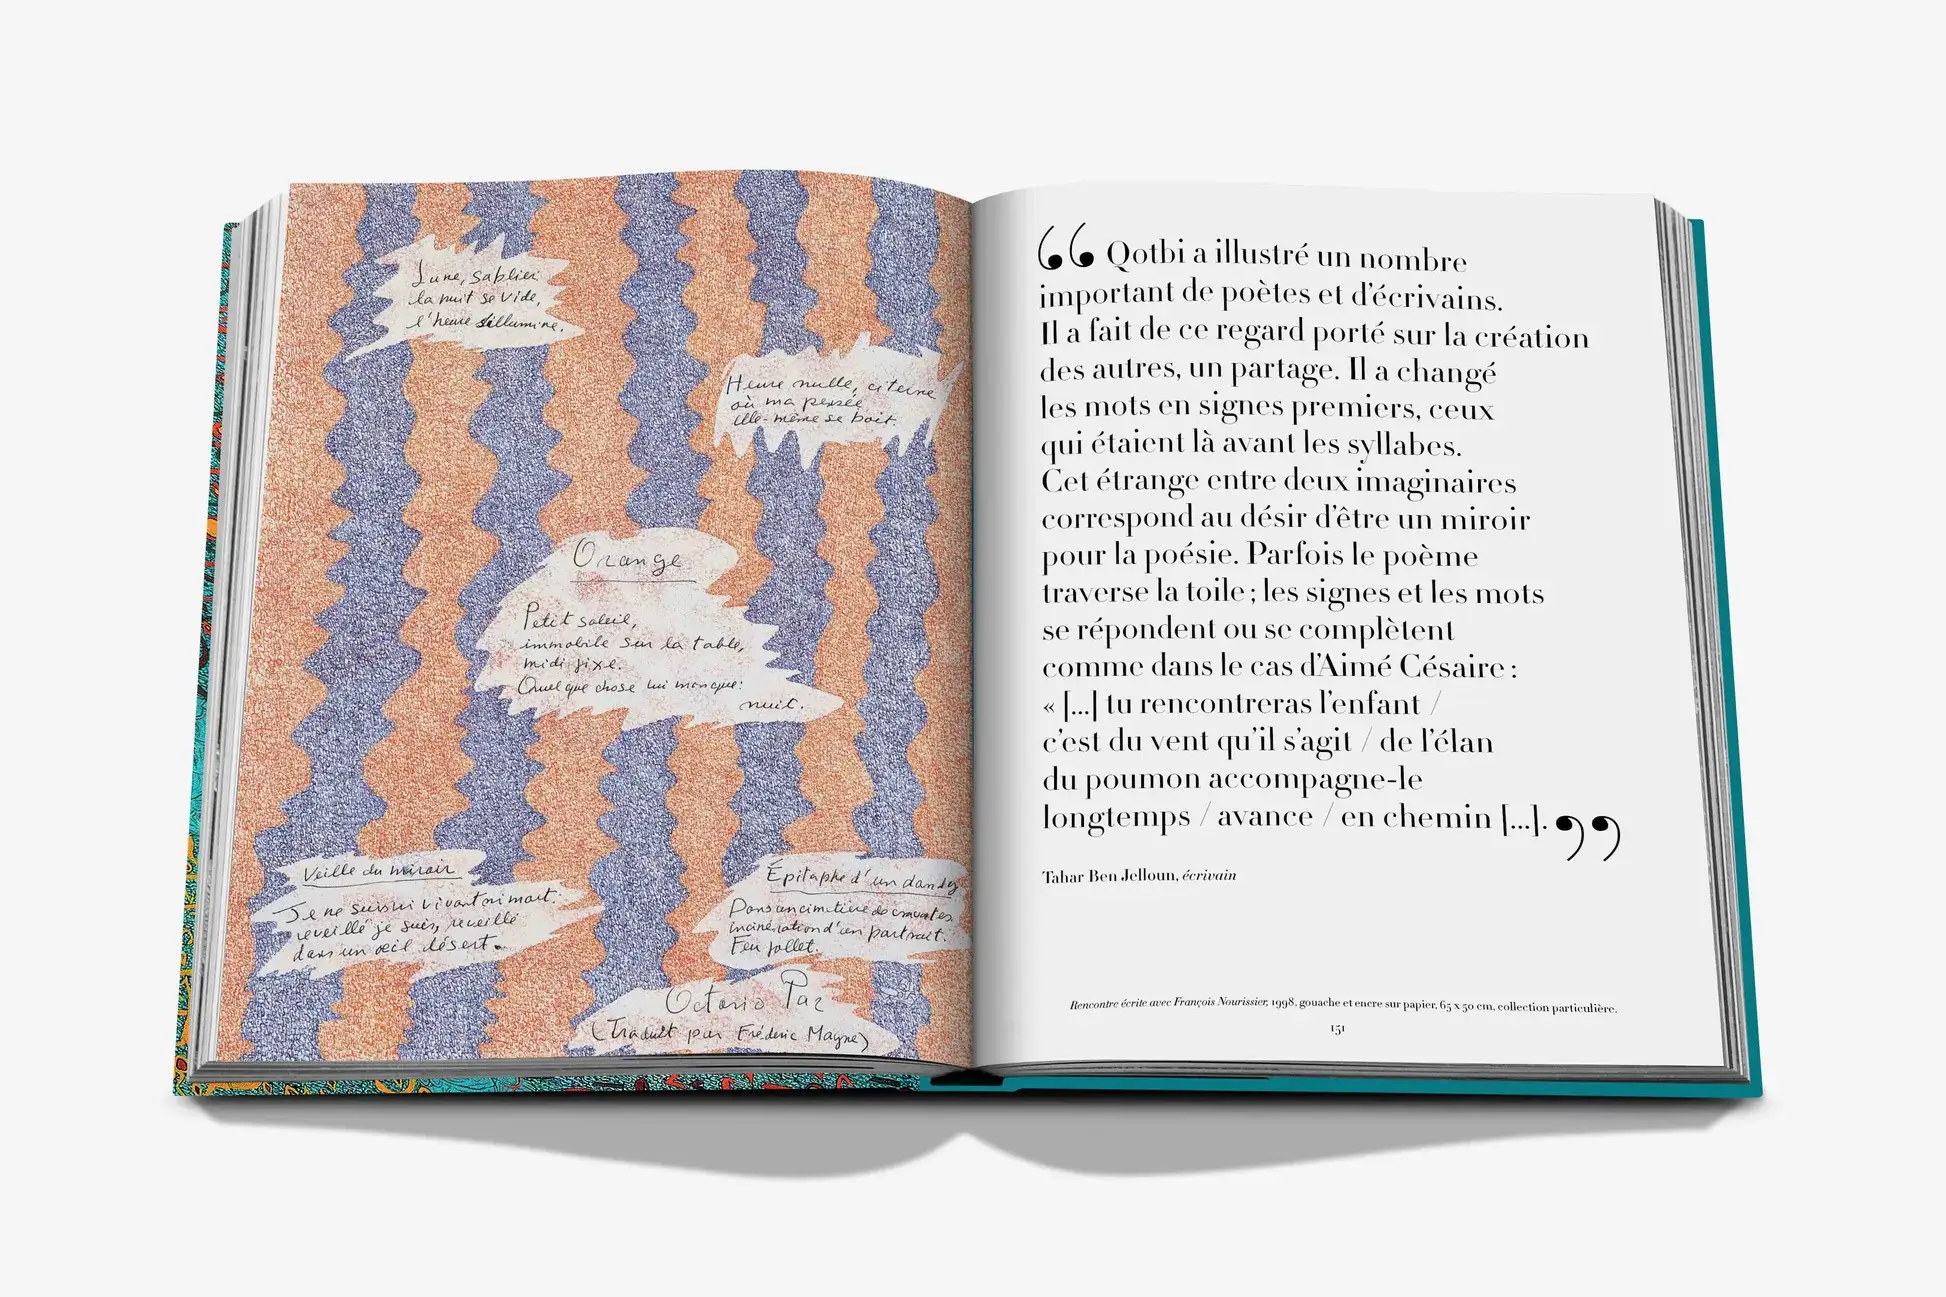 Lune, sablier
la nuit se vide,
l'heure s'illumine.
Heure nulle, citerne
où ma pensée
elle-même se boit.
Orange
Petit soleil,
immobile sur la table,
midi fixe.
Quelque chose lui manque:
nuit.
Veille du miroir
Je ne suis ni vivant ni mort.
reveillé je suis, reveillé
dans un œil désert.
Épitaphe d'un dandy
Dans un cimetière de cravates
incinération d'un portrait.
Feu follet.
Octavio Paz
(Traduit par Fréderic Magne)
“ Qotbi a illustré un nombre
important de poètes et d’écrivains.
Il a fait de ce regard porté sur la création
des autres, un partage. Il a changé
les mots en signes premiers, ceux
qui étaient là avant les syllabes.
Cet étrange entre deux imaginaires
correspond au désir d’être un miroir
pour la poésie. Parfois le poème
traverse la toile ; les signes et les mots
se répondent ou se complètent
comme dans le cas d’Aimé Césaire :
« [...] tu rencontreras l’enfant /
c’est du vent qu’il s’agit / de l’élan
du poumon accompagne-le
longtemps / avance / en chemin [...]. ”
Tahar Ben Jelloun, écrivain
Rencontre écrite avec François Nourissier, 1998, gouache et encre sur papier, 65 x 50 cm, collection particulière.
151